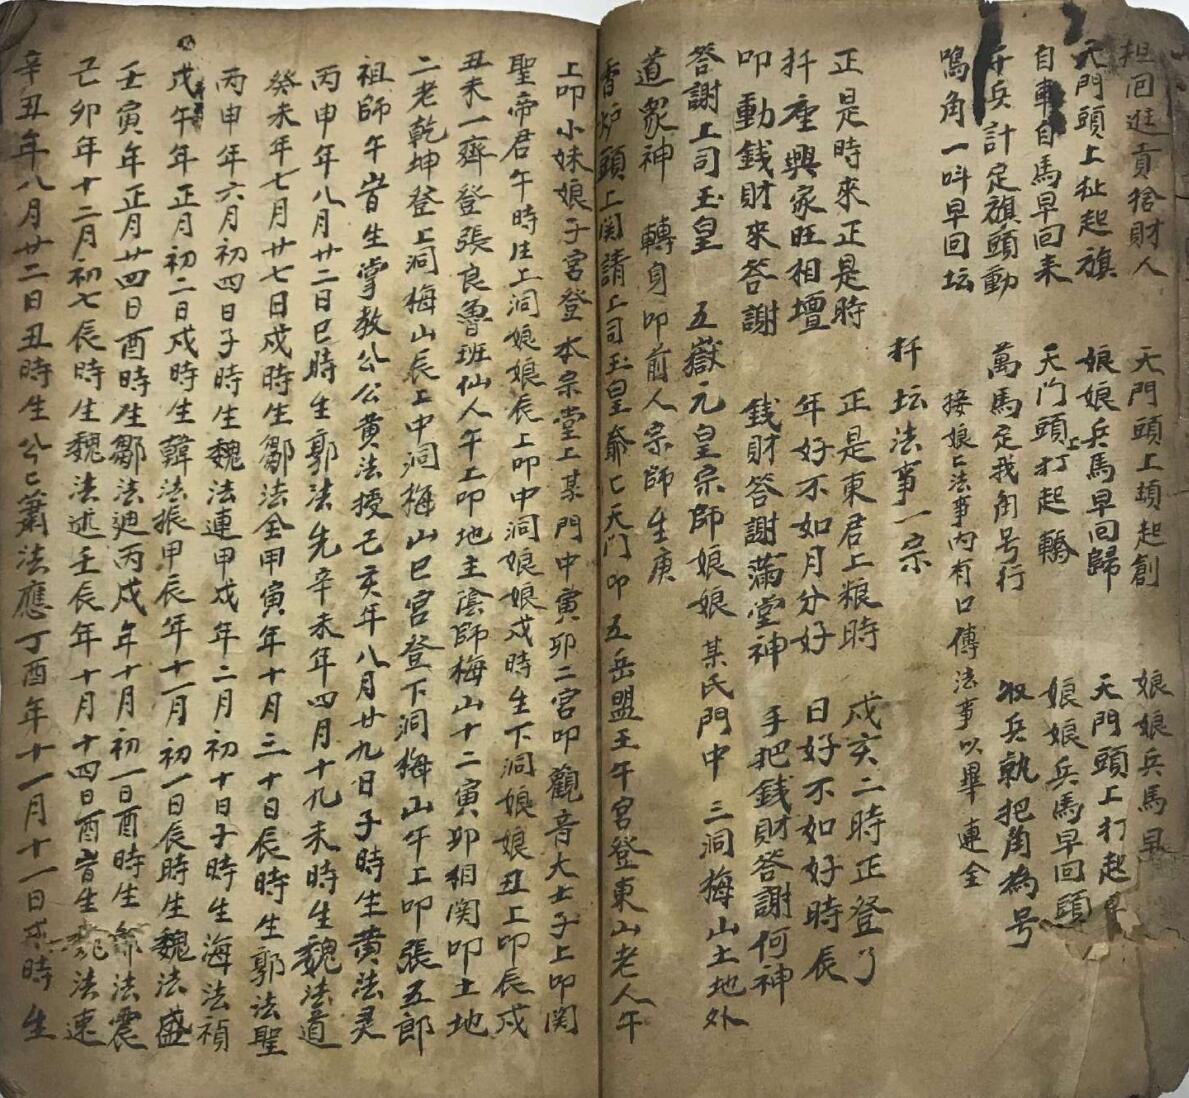 担回進貢捨財人 天門頭上頊起創 娘娘兵馬早
天門頭上扯起旗 娘娘兵馬早回歸 天門頭上打起
自車自馬早回来 天门頭上打起轎 娘娘兵馬早回頭
兵計定旗頭動 萬馬走我角号行 收兵執把角為号
鳴角一呌早回坛 接娘〻法事内有口傳法事以畢 連金
扦坛法事一宗
正是時來正是時 正是東君上粮時 戌亥二時正登了
扦座興家旺相壇 年好不如月分好 日好不如好時辰
叩動錢財來答謝 錢財答謝滿堂神 手把錢財答謝何神
答謝上司玉皇 五嶽元皇宗師娘娘 某氏門中 三洞梅山土地外
道眾神 轉身叩前人宗師生庚
香炉頭上関請上司玉皇爺〻天门叩五岳盟王午宮登東山老人午
上叩小妹娘子宮登本宗堂上某門中寅卯二宮叩觀音大士子上叩関
聖帝君午時庄上洞娘娘辰上叩中洞娘娘戌時生下洞娘娘丑上叩辰戌
丑未一齊登張良魯班仙人午上叩地主陰師梅山十二寅卯相関叩土地
二老乾坤登上洞梅山辰上中洞梅山巳宮登下洞梅山午上叩張五郎
祖師午皆生掌教公公黄法授己亥年八月廿九日子時生黄法灵
丙申年八月廿二日巳時生郭法先辛未年四月十九未時生魏法道
癸未年七月廿七日戌時生鄒法金甲寅年十月三十日辰時生郭法聖
丙申年六月初四日子時生魏法連甲戌年二月初十日子時生海法禎
戊午年正月初二日戌時生韓法振甲辰年十一月初一日辰時生魏法盛
壬寅年正月廿四日酉時生鄒法廻丙戌年十月初一日酉時生 法震
己卯年十二月初七辰時生魏法述壬辰年十月十四日酉皆生魏法速
辛丑年八月廿二日丑時生公〻蕭法應丁酉年十一月十一日戌時生